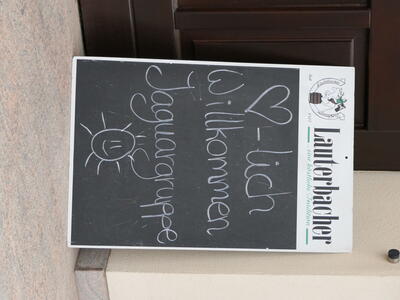 Lauterbacher
♡-lich
willkommen
Jaguargruppe